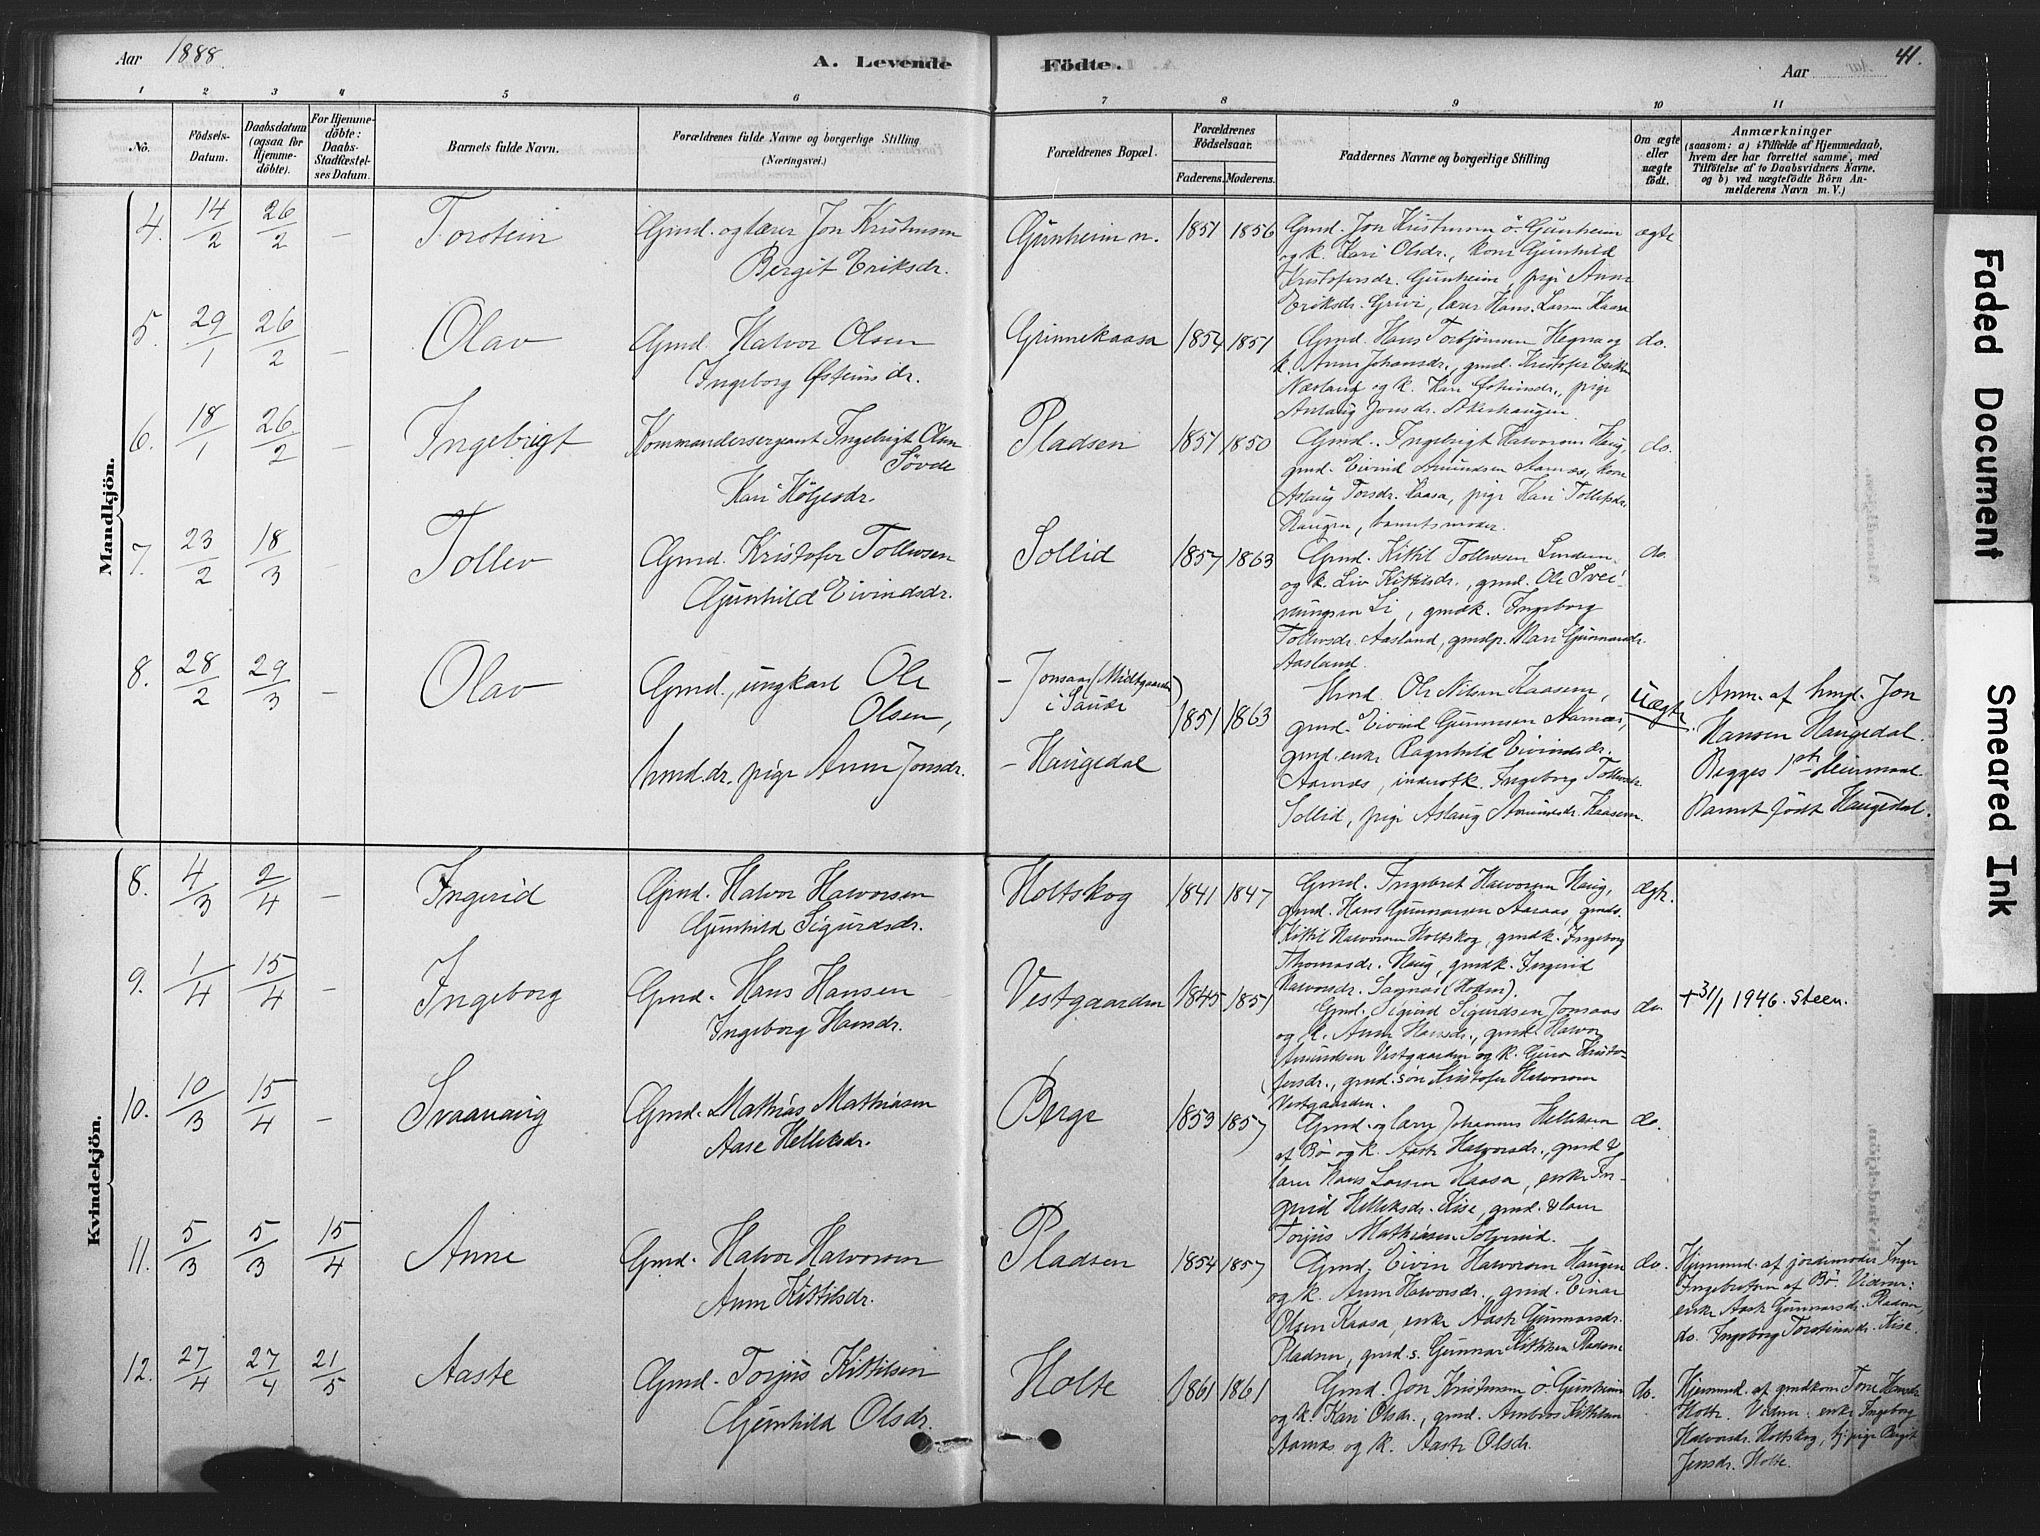 Aar 1888.
A. Levende Födte.
Aar
41.
1 2 3 4 5 6 7 8 9 10 11
No.
Födsels-
Datum.
Daabsdatum
(ogsaa for
Hjemme-
döbte).
For Hjemme-
döbte:
Daabs-
Stadfæstel-
ses Datum.
Barnets fulde Navn.
Forældrenes fulde Navne og borgerlige Stilling
(Næringsvei.)
Forældrenes Bopæl.
Forældrenes
Födselsaar.
Faderens. Moderens.
Faddernes Navne og borgerlige Stilling
Om ægte
eller
uægte
födt.
Anmærkninger
(saasom: a) i Tilfælde af Hjemmedaab,
hvem der har forrettet samme, med
Tilföielse af to Daabsvidners Navne,
og b) ved uægtefödte Börn An-
melderens Navn m. V.)
Mandkjön.
4. 14/2 26/2 – Torstein
Gmd. og lærer Jon Kristensen
Bergit Eriksdr.
Gunheim n. 1851 1856
Gmd. Jon Kristensen ö. Gunheim
og k. Kari Olsdr., kone Gunhild
Kristofersdr. Gunheim, pige Anne
Eriksdr. Grivi, lærer Hans Larsen Kaasa
ægte
5. 29/1 26/2 – Olav
Gmd. Halvor Olsen
Ingeborg Østeinsdr.
Grinnekaasa 1854 1851
Gmd. Hans Torbjörnsen Hegna og
k. Anne Johansdr., gmd. Kristofer Eriksen
Næsland og k. Kari, pige
Aslaug Jonsdr. Akerhaugen.
do.
6. 18/1 26/2 – Ingebrigt
Kommandersergeant Ingebrigt Olsen
Søvde
Kari Höljesdr.
Pladsen 1851 1850
Gmd. Ingebrigt Halvorsen Haug,
gmd. Eivind Amundsen Aarnæs, kone
Aslaug Torsdr. Kaasa, pige Kari Tollefsdr.
Haugen, barnets moder.
do.
7. 23/2 18/3 Tollev
Gmd. Kristofer Tollevsen
Gunhild Eivindsdr.
Sollid 1857 1863
Gmd. Kittil Tollevsen Lindem
og k. Liv Kittilsdr., gmd. Ole Svei-
nungsen Li, gmdk. Ingeborg
Tollevsdr. Aasland, gmdp. Kari Gunnarsdr.
Aasland.
do.
8. 28/2 29/3 – Olav
Gmd., ungkarl Ole
Olsen,
hmd.dr. pige Anne Jonsdr.
– Jonsaas (Midtgaarden)
i Saude
– Haugedal
1851 1863
Hmd. Ole Nilsen Kaasene,
gmd. Eivind Gunnarsen Aarnæs,
gmd. enke Ragnhild Eivindsdr.
Aarnæs, inderstk. Ingeborg Tollevsdr.
Sollid, pige Aslaug Amundsdr. Kaasene.
Uægte.
Anm. af hmd. Jon
Hansen Haugedal.
Begges 1ste leiermaal.
Barnet født Haugedal.
Kvindekjön.
8. 4/3 2/4 – Ingerid
Gmd. Halvor Halvorsen
Gunhild Sigurdsdr.
Holtskog 1841 1847
Gmd. Ingebret Halvorsen Haug,
gmd. Hans Gunnarsen Aaraas, gmds.
Kittil Halvorsen Holtskog, gmdk. Ingeborg
Thomasdr. Haug, gmdk. Ingerid
Halvorsdr. Sagnæs (Moden).
ægte.
9. 1/4 15/4 – Ingeborg
Gmd. Hans Hansen
Ingeborg Hansdr.
Vestgaarden 1845 1851
Gmd. Sigurd Sigurdsen Jonsaas
og k. Anne Hansdr., gmd. Halvor
Amundsen Vestgaarden og k. Guro Kristo-
fersdr., gmd.søn Kristofer Halvorsen
Vestgaarden.
do.
+ 31/1 1946. Steen.
10. 10/3 15/4 – Svaanaug
Gmd. Mathias Mathiasen
Aase Helleksdr.
Berge 1853 1857
Gmd. og lærer Johannes Helleksen
af Bø og k. Aaste Halvorsdr., gmd &
lærer Hans Larsen Kaasa, enke In-
gerid Helleksdr. Kise, gmd. & lærer
Torjus Mathiasen
do.
11. 5/3 5/3 15/4 Anne
Gmd. Halvor Halvorsen
Anne Kittilsdr.
Pladsen 1854 1857
Gmd. Eivin Halvorsen Haugen
og k. Anne Halvorsdr., gmd. Einar
Olsen Kaasa, enke Aaste Gunnarsdr.
Pladsen, gmd. s. Gunnar Kittilsen Pladsen
do.
Hjemmed. af jordemoder Inger
Ingebretsen af Bø. Vidner:
enke Aaste Gunnarsdr. Pladsen,
do. Ingeborg Torsteinsdr. Kise.
12. 27/4 27/4 21/5 Aaste
Gmd. Torjus Kittilsen
Gunhild Olsdr.
Holte 1861 1861
Gmd. Jon Kristensen ö. Gunheim
og k. Kari Olsdr., gmd. Ambros Kittilsen
Aarnæs og k. Aaste Olsdr.
do.
Hjemmed. af gmdkone Tone Hansdr.
Holte. Vidner: enke Ingeborg
Halvorsdr. Holtskog, tj. pige Bergit
Jensdr. Holte.
Faded Document
Smeared Ink